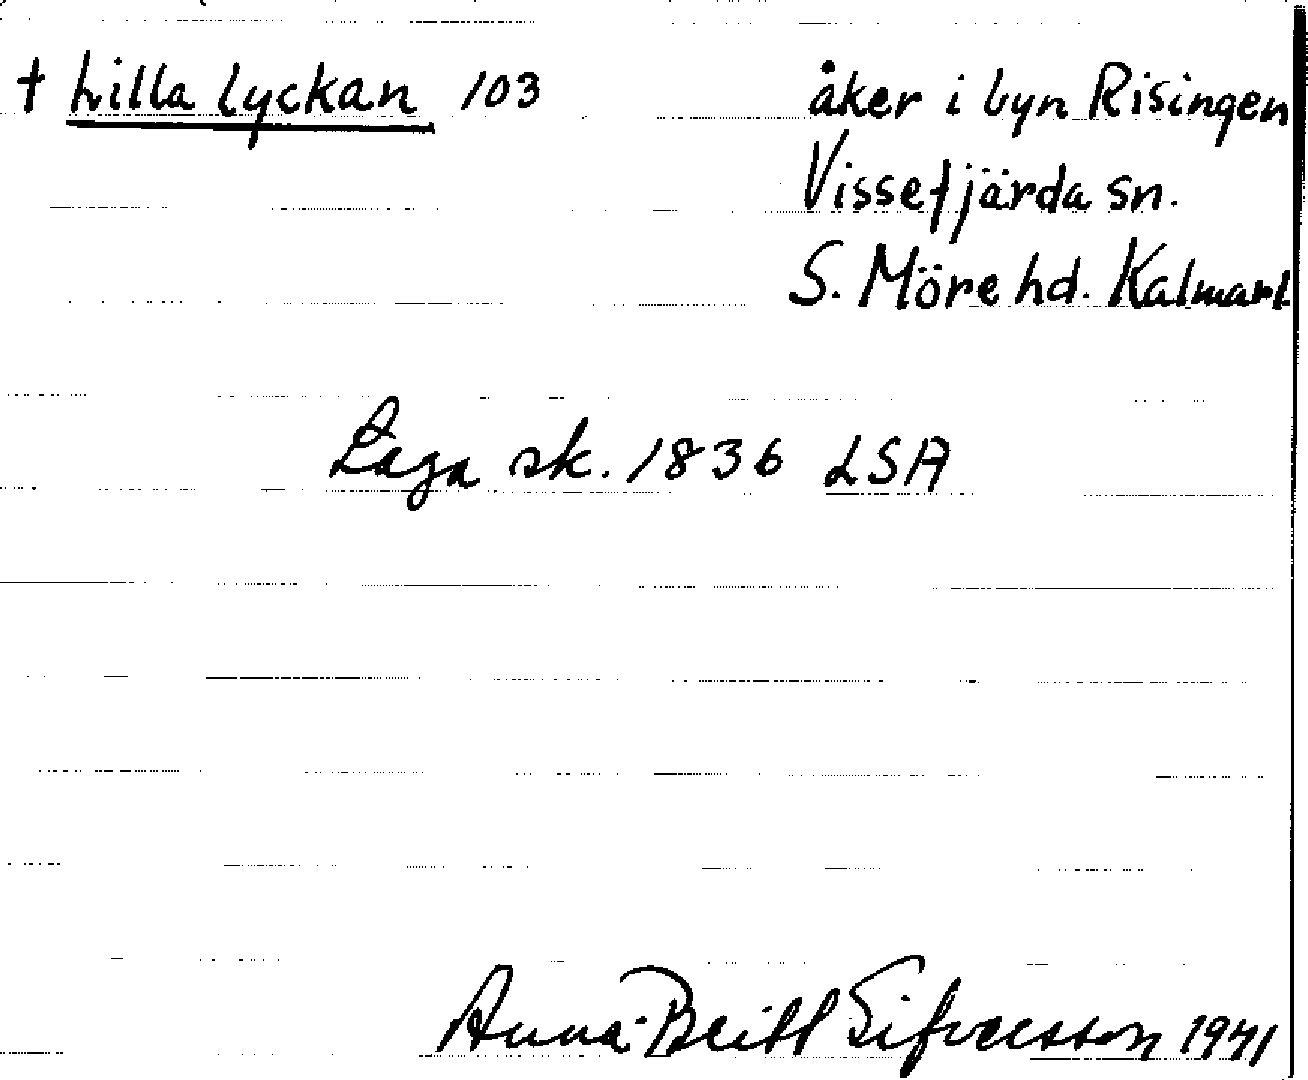 † Lilla lyckan 103 åker i byn Risingen
Vissefjärda sn.
S. Möre hd. Kalmarl
Laga sk. 1836 LSA
Anna-Britt Sifversson 1971